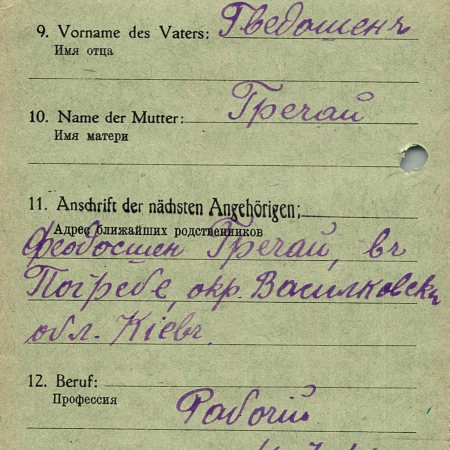 9. Vorname des Vaters: Гведошенъ
Имя отца
10. Name der Mutter: Гречай
Имя матери
11. Anschrift der nächsten Angehörigen:
Адрес ближайших родственников
Феодосшен Гречай, въ
Погребе, окр. Василковски
обл. Кіевъ.
12. Beruf:
Профессия
Рабочій